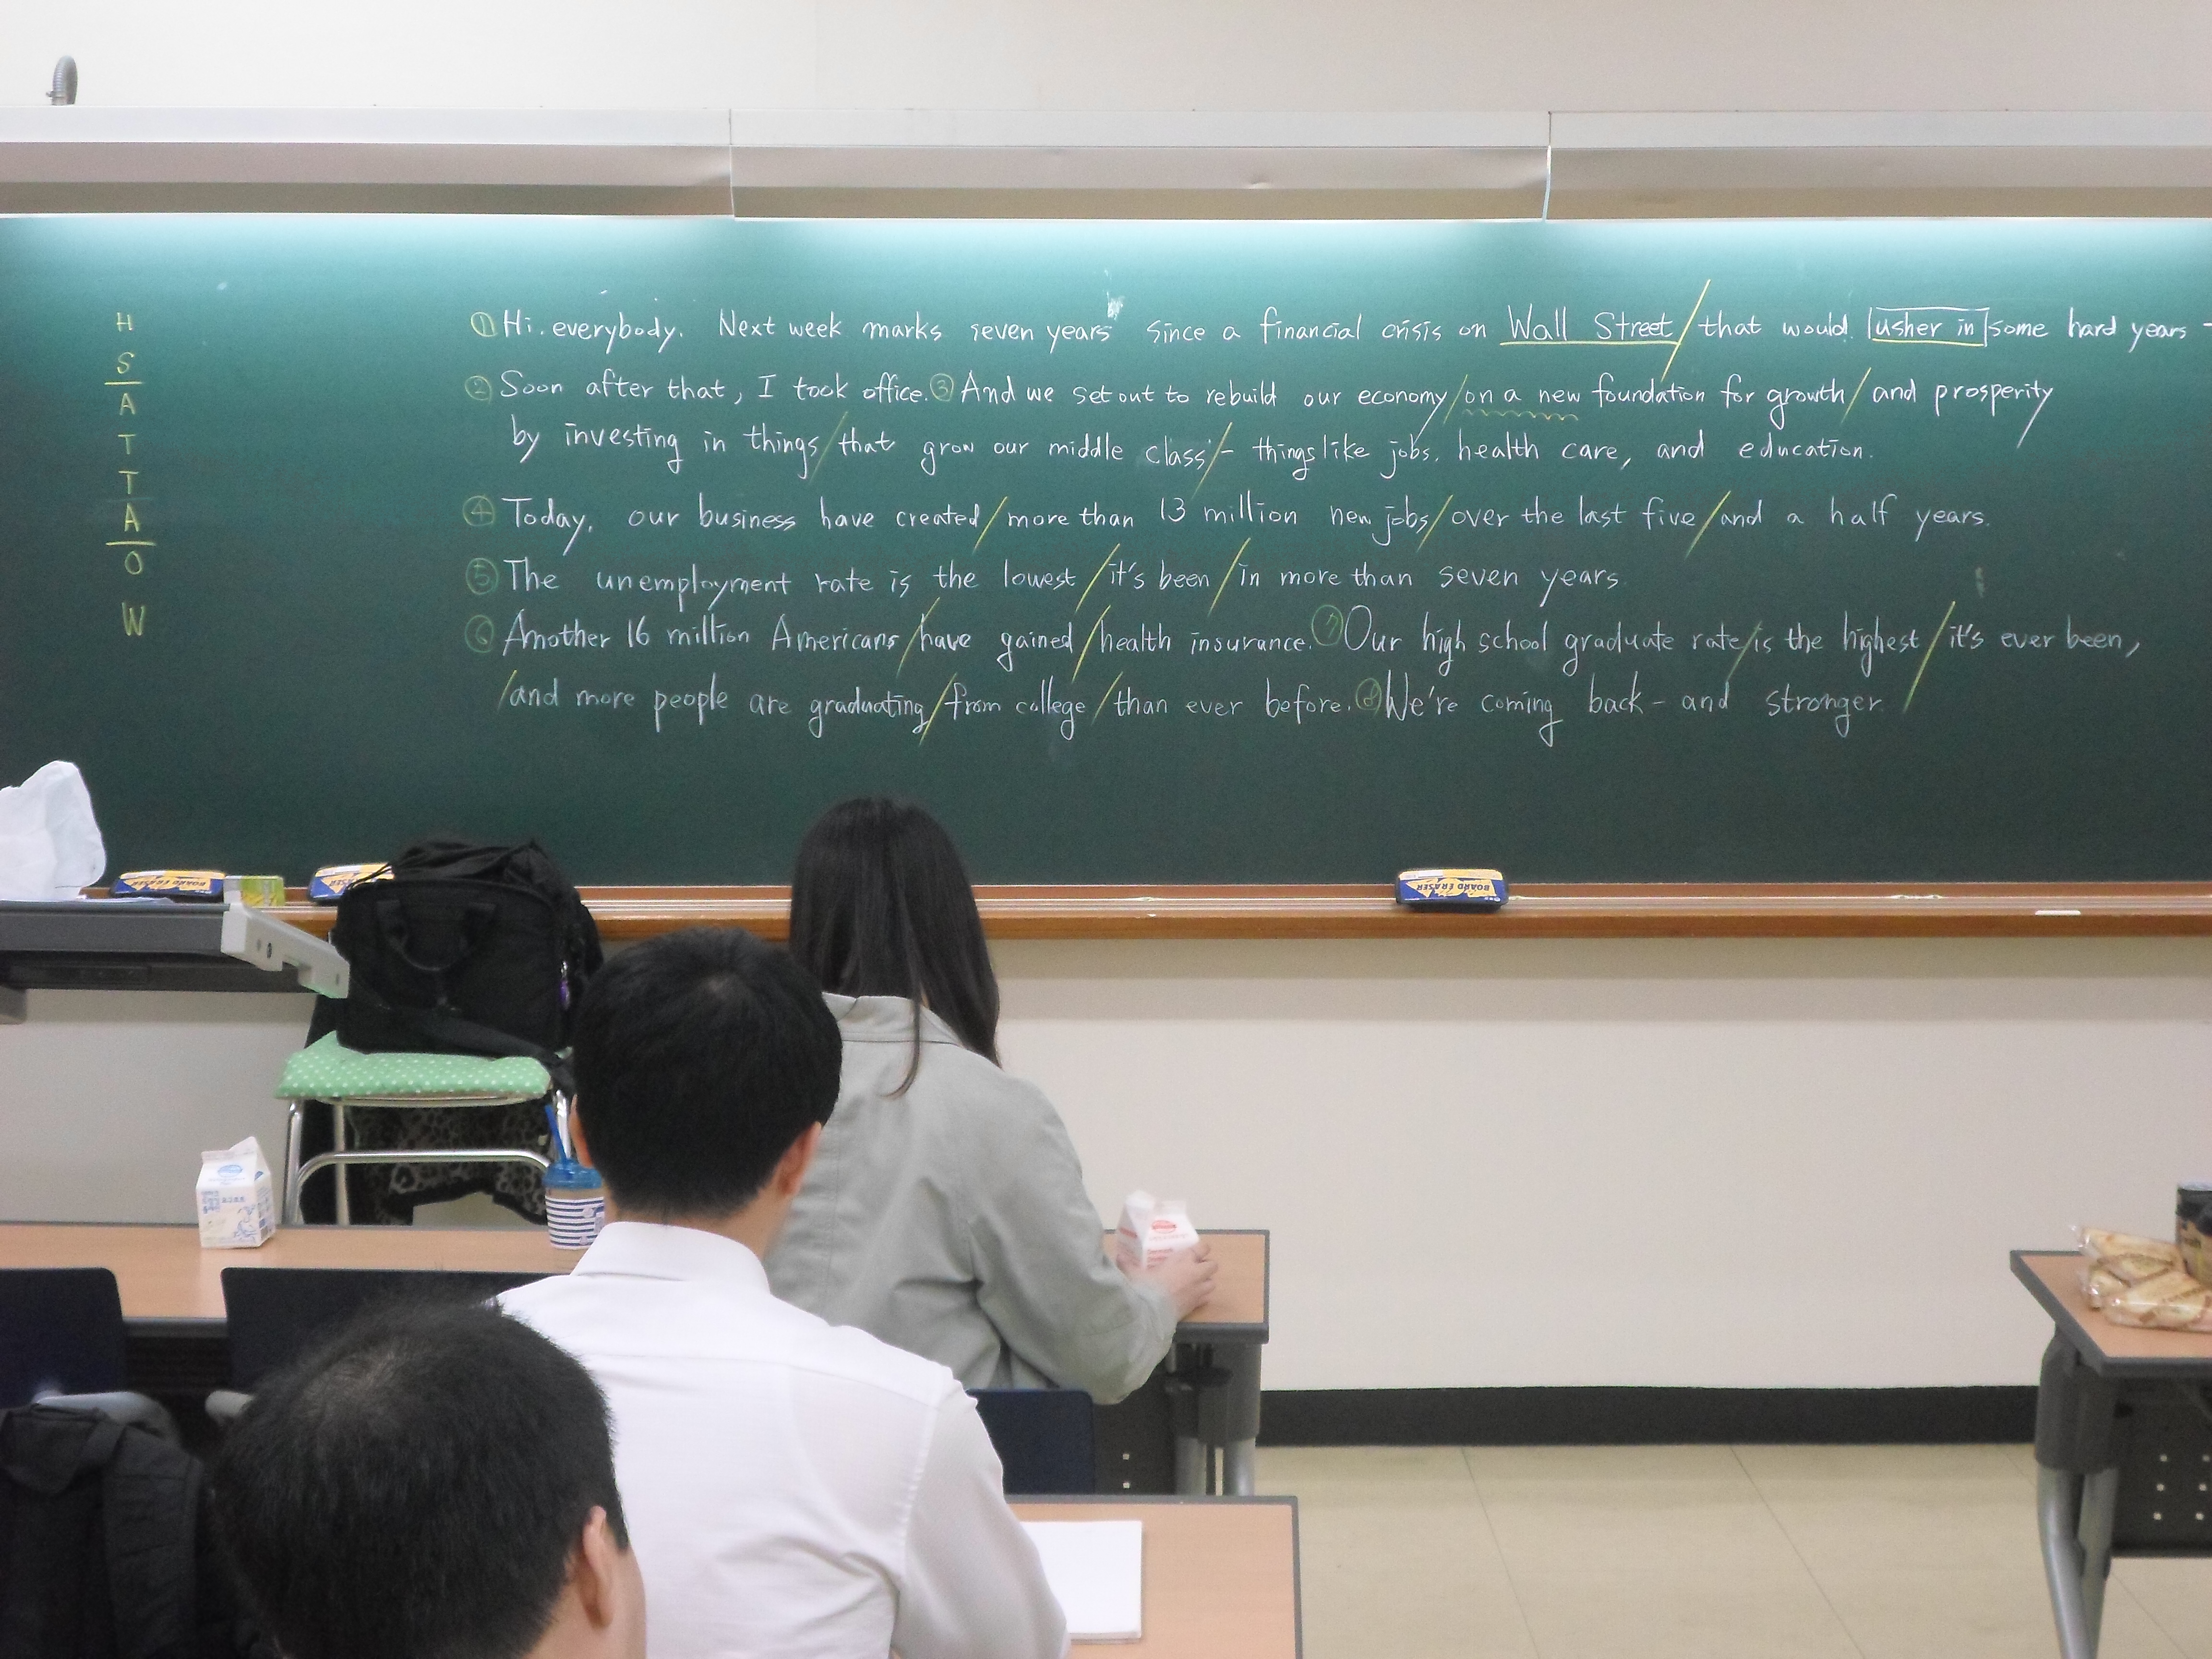 H
S
A
T
T
A
O
W
① Hi. everybody. Next week marks seven years since a financial crisis on Wall Street / that would usher in some hard years -
② Soon after that, I took office. ③ And we set out to rebuild our economy / on a new foundation for growth / and prosperity
by investing in things / that grow our middle class / - things like jobs, health care, and education.
④ Today, our business have created / more than 13 million new jobs / over the last five / and a half years.
⑤ The unemployment rate is the lowest / it's been / in more than seven years
⑥ Another 16 million Americans / have gained / health insurance. ⑦ Our high school graduate rate / is the highest / it's ever been,
/ and more people are graduating / from college / than ever before. ⑧ We're coming back - and stronger
BOARD ERASER
ERASER
BOARD ERASER